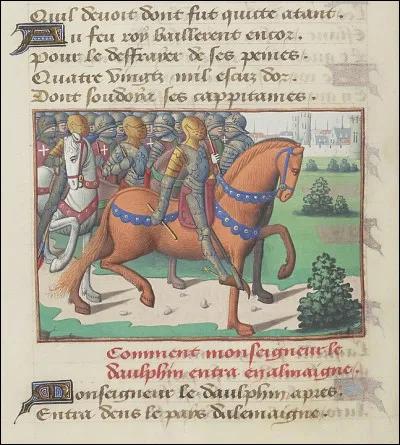 Quil devoit dont fut quite atant.
Au feu roy baillerent encor.
Pour le deffrayer de ses peines
Quatre vingtz mil escuz dor.
Dont souldoyer ses cappitaines.
Comment monseigneur le
daulphin entra en almaigne.
Monseigneur le daulphin apres.
Entra dens le pais dalemaigne.